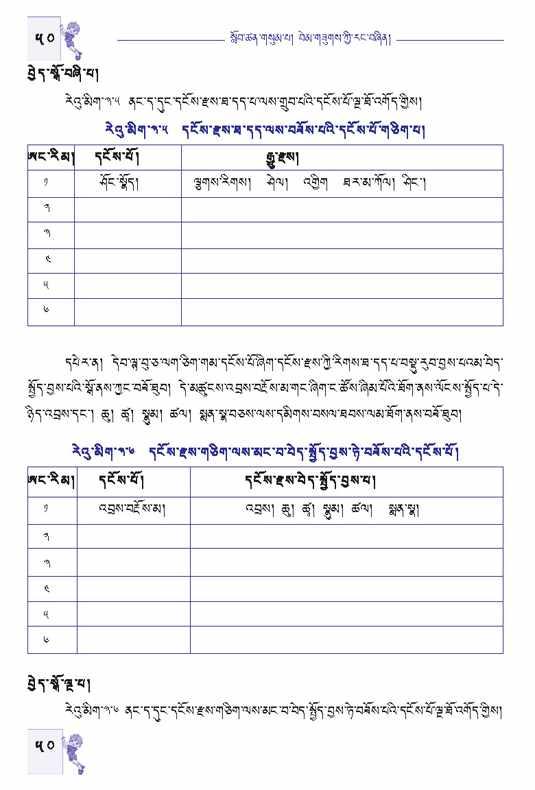 ༥༠ སློབ་ཚན་གསུམ་པ། བེམ་གཟུགས་ཀྱི་རང་བཞིན།
བྱེད་སྒོ་བཞི་པ།
རེའུ་མིག་༣་༥ ནང་ད་དུང་དངོས་རྫས་ཐ་དད་པ་ལས་གྲུབ་པའི་དངོས་པོ་ལྔ་ཐོ་འགོད་གྱིས།
རེའུ་མིག་༣་༥ དངོས་རྫས་ཐ་དད་ལས་བཟོས་པའི་དངོས་པོ་གཅིག་པ།
ཨང་རིམ། དངོས་པོ། རྒྱུ་རྫས།
༡ ཤོང་སྣོད། ལྕགས་རིགས། ཤེལ། འགྱིག ཐར་མ་ཀོལ། ཤིང་།
༢
༣
༤
༥
༦
དཔེར་ན། དེབ་ལྟ་བུ་ཅ་ལག་ཅིག་གམ་དངོས་པོ་ཞིག་དངོས་རྫས་ཀྱི་རིགས་ཐ་དད་པ་བསྡུ་རུབ་བྱས་པའམ་བེད་
སྤྱོད་བྱས་པའི་སྒོ་ནས་ཀྱང་བཟོ་ཐུབ། དེ་མཚུངས་འབྲས་བརྡོས་མ་གང་ཞིག་ང་ཚོས་ཞིམ་པོའི་ཐོག་ནས་ལོངས་སྤྱོད་པ་དེ་
ཉིད་འབྲས་དང་། ཆུ། ཚྭ། སྣུམ། ཚལ། སྨན་སྣ་བཅས་ལས་དམིགས་བསལ་ཐབས་ལམ་ཐོག་ནས་བཟོ་ཐུབ།
རེའུ་མིག་༣་༦ དངོས་རྫས་གཅིག་ལས་མང་བ་བེད་སྤྱོད་བྱས་ཏེ་བཟོས་པའི་དངོས་པོ།
ཨང་རིམ། དངོས་པོ། དངོས་རྫས་བེད་སྤྱོད་བྱས་པ།
༡ འབྲས་བརྡོས་མ། འབྲས། ཆུ། ཚྭ། སྣུམ། ཚལ། སྨན་སྣ།
༢
༣
༤
༥
༦
བྱེད་སྒོ་ལྔ་པ།
རེའུ་མིག་༣་༦ ནང་ད་དུང་དངོས་རྫས་གཅིག་ལས་མང་བ་བེད་སྤྱོད་བྱས་ཏེ་བཟོས་པའི་དངོས་པོ་ལྔ་ཐོ་འགོད་གྱིས།
༥༠